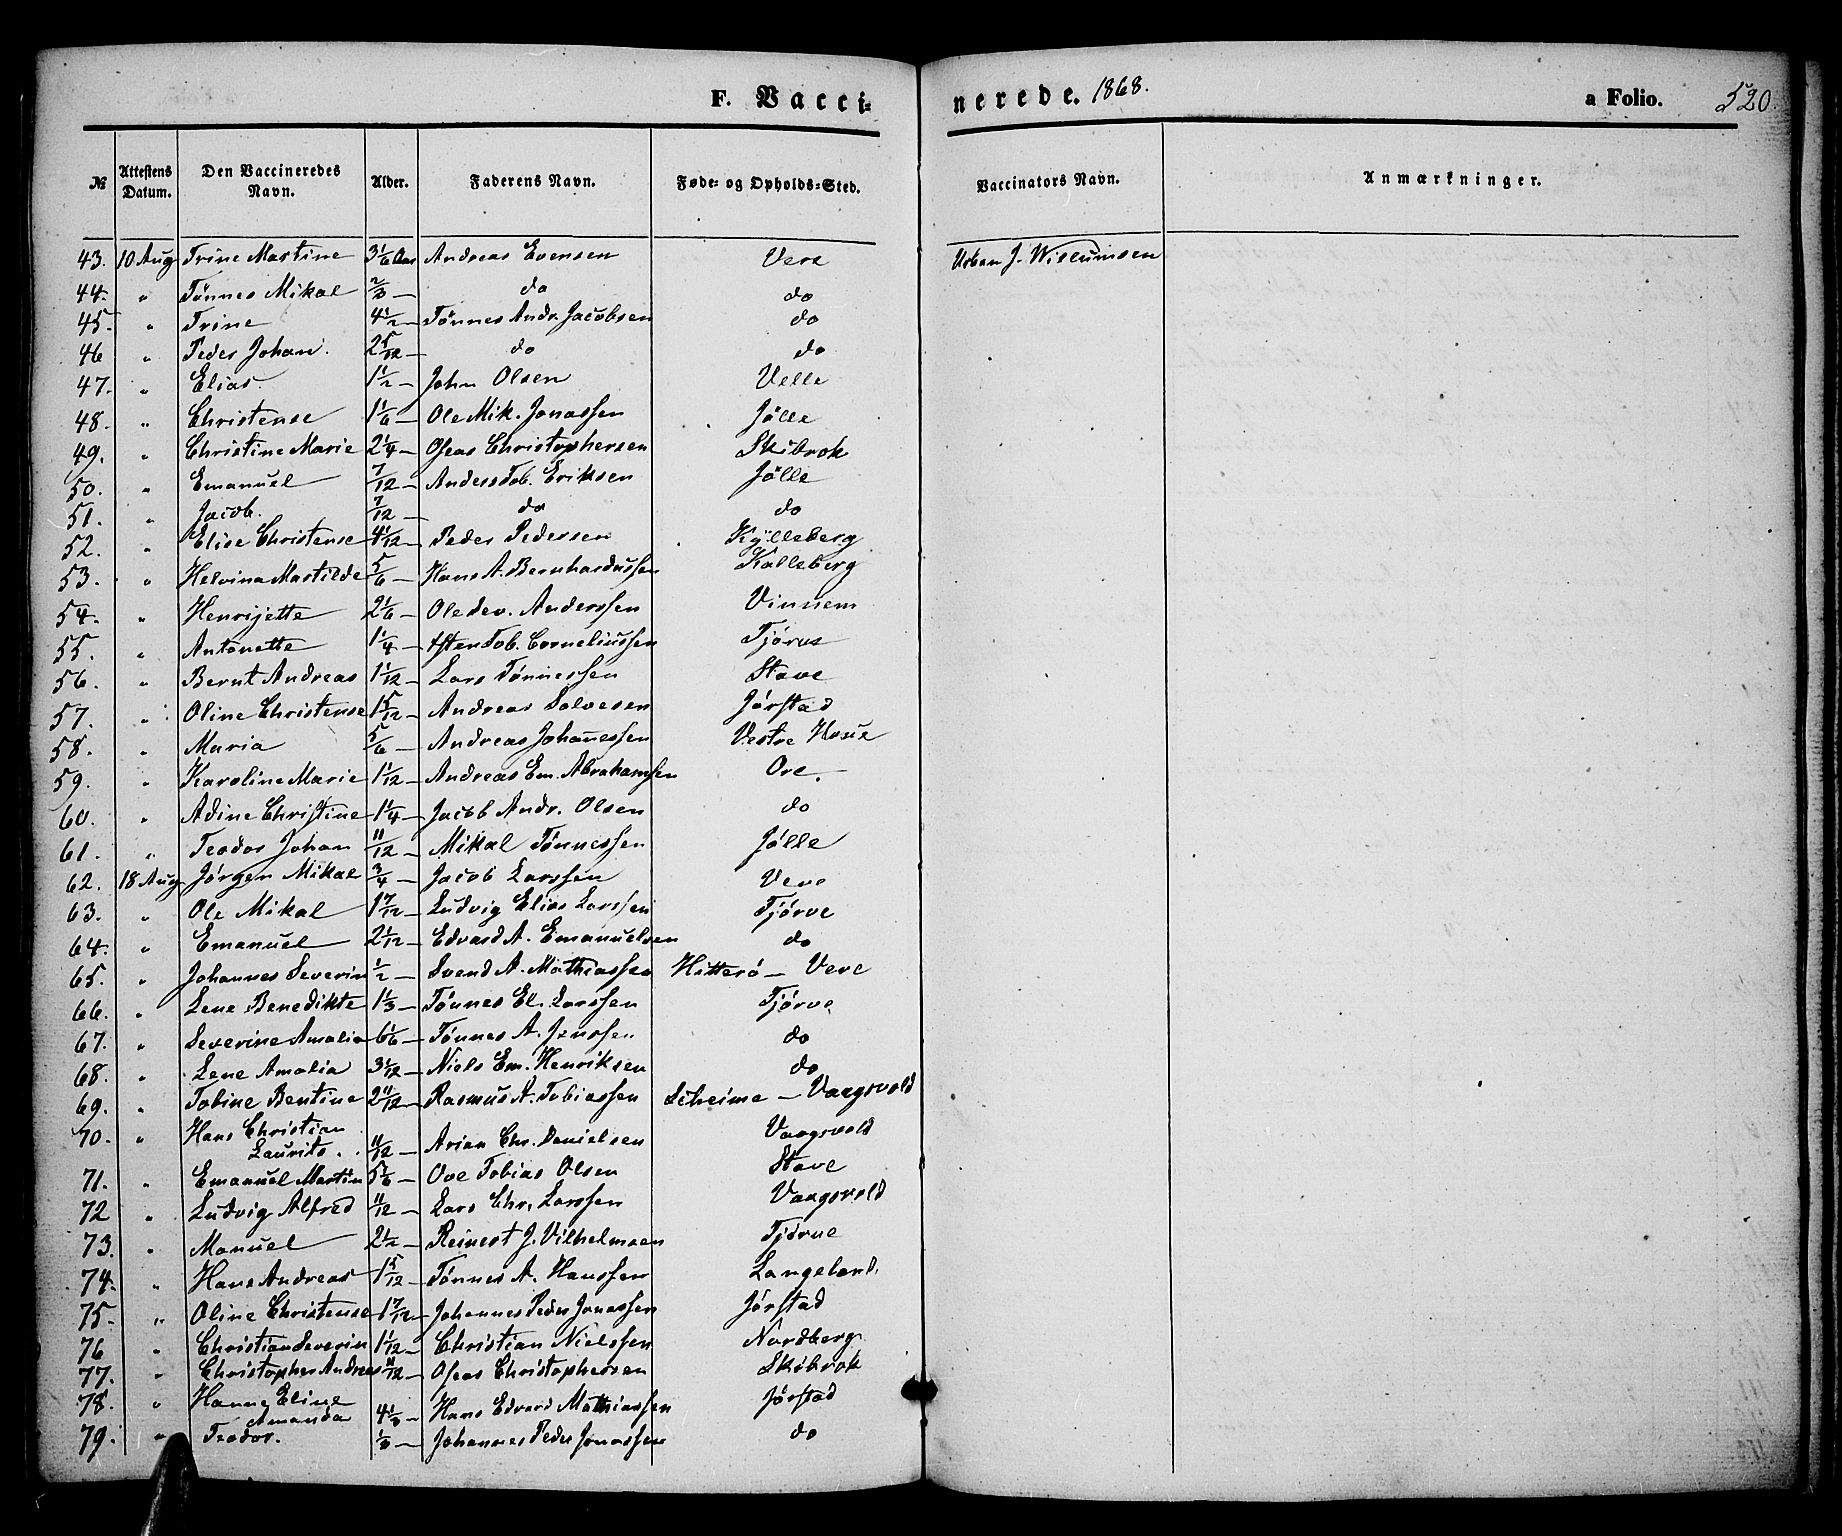 F. Vacci=
nerede. 1868.
a Folio. 520.
№ Attestens Datum. Den Vaccineredes Navn. Alder. Faderens Navn. Føde= og Opholds=Sted. Vaccinators Navn. Anmærkninger.
43. 10 Aug Trine Martine 3 1/6 Andreas Evensen Vere Urban J.
44. " Tönnes Mikal 2/3 — do do
45. " Trine 4 1/2 — Tönnes Andr. Jacobsen do
46 " Peder Johan. 2 5/12 — do do
47. " Elias. 1 1/2 — John Olsen Velle
48. " Christense 1 1/6 — Ole Mik. Jonassen Jölle
49. " Christine Marie 2 1/4 — Oseas Christophersen Skibrok
50. " Emanuel 7/12 — Anders Tob. Eriksen Jölle
51. " Jacob. 7/12 — do do
52. " Elise Christense 4 1/12 — Peder Pedersen Kylleberg
53. " Helvina Mastilde 5/6 — Hans A. Bernhardussen Kalleberg
54. " Henrijette 2 1/6 — Ole Anderssen Vinnem
55. " Antonette 1 1/4 — Tob. Corneliussen Tjörve
56. " Bernt Andreas 1 1/12 — Lars Tönnessen Stave
57. " Oline Christense 1 5/12 — Andreas Solvesen Jörstad
58. " Maria 5/6 — Andreas Johanessen Vestre
59. " Karoline Marie 1 1/12 — Andreas Em. Abrahamsen Ore.
60. " Adine Christine 1 1/4 — Jacob Andr. Olsen do
61. " Teodor Johan 11/12 — Mikal Tönnessen Jölle
62. 18 Aug Jörgen Mikal 3/4 — Jacob Larssen Vere
63. " Ole Mikal 1 7/12 — Ludvig Elias Larssen Tjörve
64. " Emanuel 2 1/12 — Edvard A. Emanuelsen do
65. " Johannes Severin 1/2 — Svend A. Mathiassen Hitterö — Vere
66. " Lene Benedikte 1 1/3 — Tönnes El. Larssen Tjörve
67. " Severine Amalia 6 1/6 — Tönnes A. Jenssen do
68. " Lene Amalia 3 1/12 — Niels Em. Henriksen do
69. " Tobine Bentine 2 11/12 — Rasmus A. Tobiassen Scheime — Vaagsvold
70. " Hans Christian
Laurits. 11/12 — Arian Chr. Danielsen Vaagsvold
71. " Emanuel Martin 5 1/6 — Ove Tobias Olsen Stave
72 " Ludvig Alfred 11/12 — Lars Chr. Larssen Vaagsvold
73. " Manuel 2 1/2 — Reinert J. Vilhelmsen Tjörve
74. " Hans Andreas 1 5/12 — Tönnes A. Hanssen Langeland.
75. " Oline Christense 1 7/12 — Johannes Peder Jonassen Jörstad
76 " Christian Severin 1 1/12 — Christian Nielssen Nordberg
77. " Christopher Andreas 11/12 — Oseas Christophersen Skibrok
78. " Hanne Eline
Amanda 4 1/3 — Hans Edvard Mathiassen Jörstad
79. " Teodor. 1/3 — Johannes Peder Jonassen do